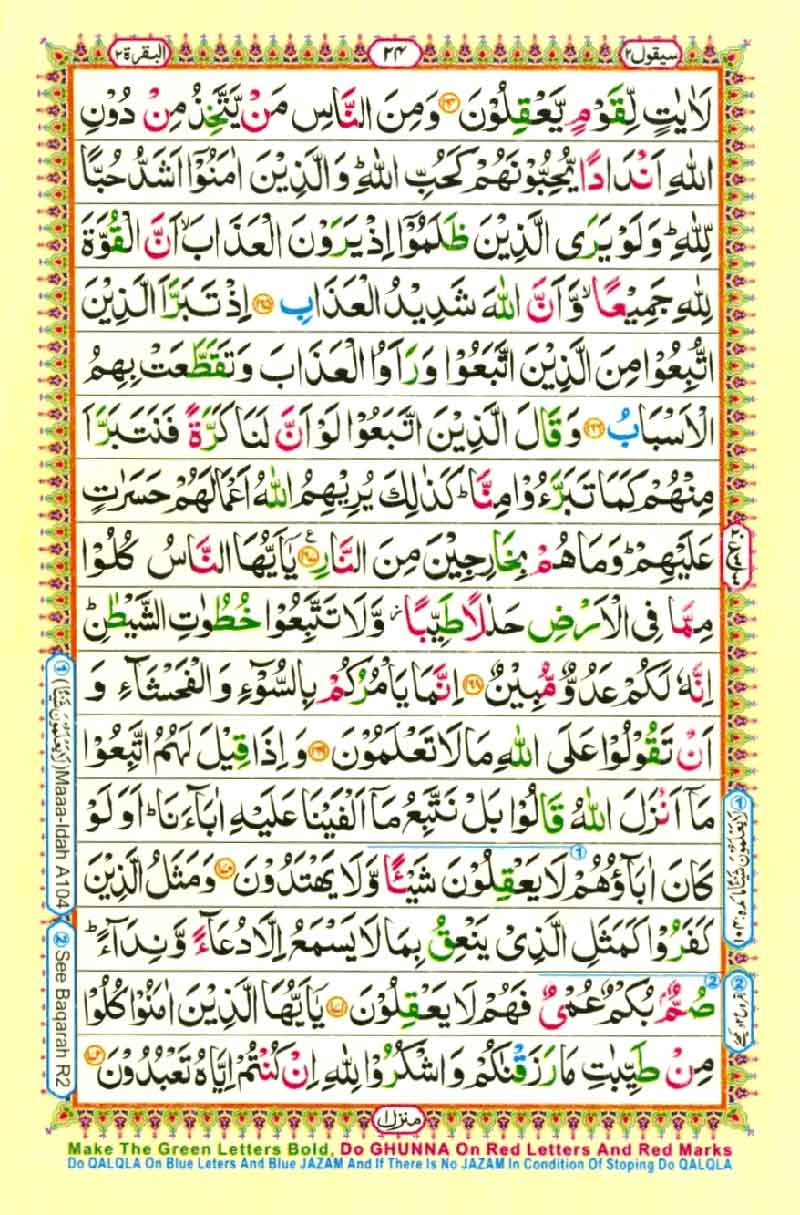 سيقول ٢
٢٤
البقرة ٢
لَاٰيٰتٍ لِّقَوْمٍ يَّعْقِلُوْنَ ﴿١٦٤﴾ وَمِنَ النَّاسِ مَنْ يَّتَّخِذُ مِنْ دُوْنِ
اللّٰهِ اَنْدَادًا يُّحِبُّوْنَهُمْ كَحُبِّ اللّٰهِ ؕ وَالَّذِيْنَ اٰمَنُوْۤا اَشَدُّ حُبًّا
لِّلّٰهِ ؕ وَلَوْ يَرَى الَّذِيْنَ ظَلَمُوْۤا اِذْ يَرَوْنَ الْعَذَابَ ۙ اَنَّ الْقُوَّةَ
لِلّٰهِ جَمِيْعًا ۙ وَّاَنَّ اللّٰهَ شَدِيْدُ الْعَذَابِ ﴿١٦٥﴾ اِذْ تَبَرَّاَ الَّذِيْنَ
اتُّبِعُوْا مِنَ الَّذِيْنَ اتَّبَعُوْا وَرَاَوُا الْعَذَابَ وَتَقَطَّعَتْ بِهِمُ
الْاَسْبَابُ ﴿١٦٦﴾ وَقَالَ الَّذِيْنَ اتَّبَعُوْا لَوْ اَنَّ لَنَا كَرَّةً فَنَتَبَرَّاَ
مِنْهُمْ كَمَا تَبَرَّءُوْا مِنَّا ؕ كَذٰلِكَ يُرِيْهِمُ اللّٰهُ اَعْمَالَهُمْ حَسَرٰتٍ
عَلَيْهِمْ ؕ وَمَا هُمْ بِخٰرِجِيْنَ مِنَ النَّارِ ﴿١٦٧﴾ ع يٰۤاَيُّهَا النَّاسُ كُلُوْا
مِمَّا فِى الْاَرْضِ حَلٰلًا طَيِّبًا ۖ وَّلَا تَتَّبِعُوْا خُطُوٰتِ الشَّيْطٰنِ ؕ
اِنَّهٗ لَكُمْ عَدُوٌّ مُّبِيْنٌ ﴿١٦٨﴾ اِنَّمَا يَاْمُرُكُمْ بِالسُّوْٓءِ وَالْفَحْشَآءِ وَ
اَنْ تَقُوْلُوْا عَلَى اللّٰهِ مَا لَا تَعْلَمُوْنَ ﴿١٦٩﴾ وَاِذَا قِيْلَ لَهُمُ اتَّبِعُوْا
مَاۤ اَنْزَلَ اللّٰهُ قَالُوْا بَلْ نَتَّبِعُ مَاۤ اَلْفَيْنَا عَلَيْهِ اٰبَآءَنَا ؕ اَوَلَوْ
كَانَ اٰبَآؤُهُمْ لَا يَعْقِلُوْنَ شَيْـًٔا وَّلَا يَهْتَدُوْنَ ﴿١٧٠﴾ وَمَثَلُ الَّذِيْنَ
كَفَرُوْا كَمَثَلِ الَّذِىْ يَنْعِقُ بِمَا لَا يَسْمَعُ اِلَّا دُعَآءً وَّنِدَآءً ؕ
صُمٌّۢ بُكْمٌ عُمْىٌ فَهُمْ لَا يَعْقِلُوْنَ ﴿١٧١﴾ يٰۤاَيُّهَا الَّذِيْنَ اٰمَنُوْا كُلُوْا
مِنْ طَيِّبٰتِ مَا رَزَقْنٰكُمْ وَاشْكُرُوْا لِلّٰهِ اِنْ كُنْتُمْ اِيَّاهُ تَعْبُدُوْنَ ﴿١٧٢﴾
① (لَا يَعْلَمُوْنَ شَيْئًا) Maaa-Idah A104
② See Baqarah R2
منزل ١
Make The Green Letters Bold, Do GHUNNA On Red Letters And Red Marks
Do QALQLA On Blue Leters And Blue JAZAM And If There Is No JAZAM In Condition Of Stoping Do QALQLA